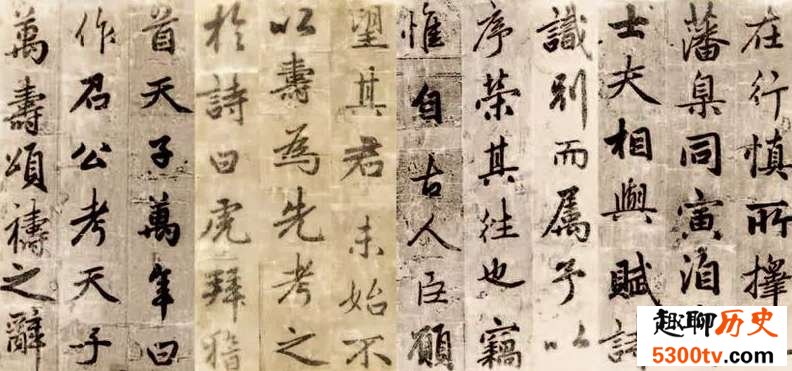 在行慎所擇
藩臬同寅洎
士夫相與賦詩
識別而屬予以
序榮其往也竊
惟自古人臣願
望其君未始不
以壽為先考之
於詩曰虎拜稽
首天子萬年曰
作召公考天子
萬壽頌禱之辭
趣聊历史
5300tv.com